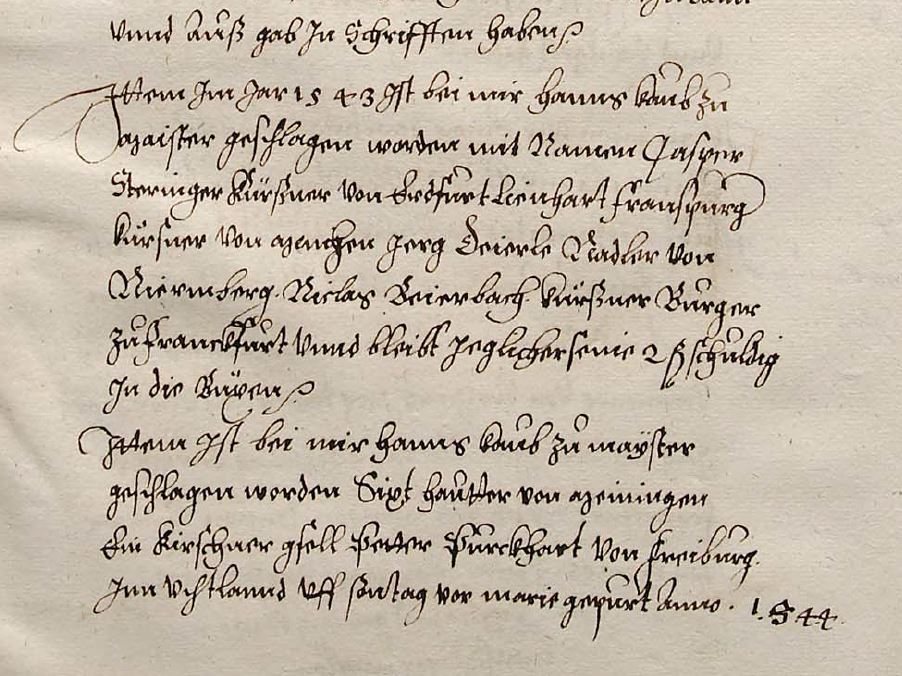 vnnd Auß gab In Schrifften haben
Ittem Im Jar 1543 Ist bei mir hanns kaub zu
Maister geschlagen worden mit Namen Casper
Steringer kürßner von Erdfurt Lienhart franspurg
kürsner von Menchen Jerg Deierle Nadler von
Niermberg. Niclas Beierbach kürßner Burger
zu franckfurt vnnd bleibt Jeglicher seine 2 ß schuldig
In die Buxen
Ittem Ist bei mir hanns kaub zu mayster
geschlagen worden Sixt hautter von Meiningen
Ein kirschner gsell Petter Purckhart von freiburg.
Inn vchtlannd vff sontag vor marie gepurt Anno. 1.544